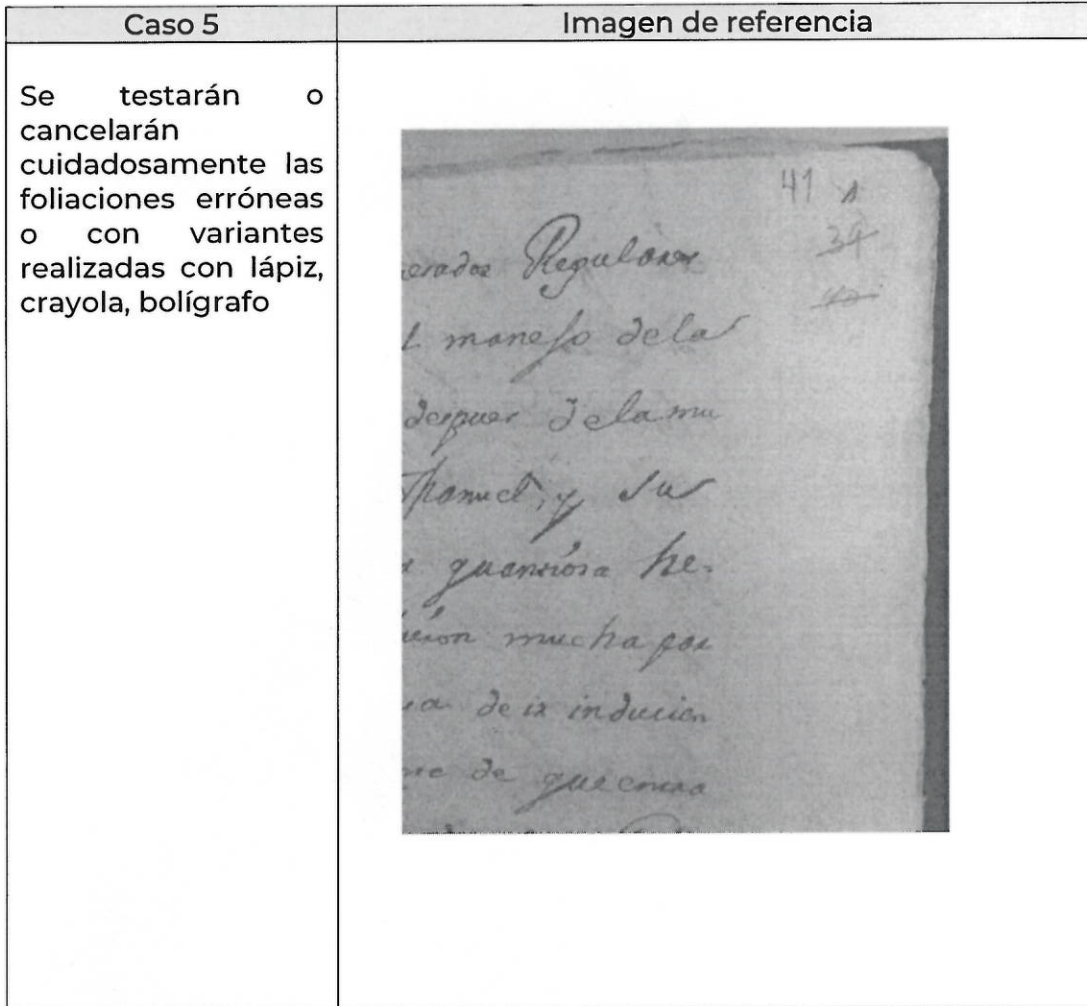 Caso 5
Imagen de referencia
Se testarán o
cancelarán
cuidadosamente las
foliaciones erróneas
o con variantes
realizadas con lápiz,
crayola, bolígrafo
41
39
40
Regulares
manejo dela
despues dela mu
Manuel, y su
he-
mucha por
de
de que